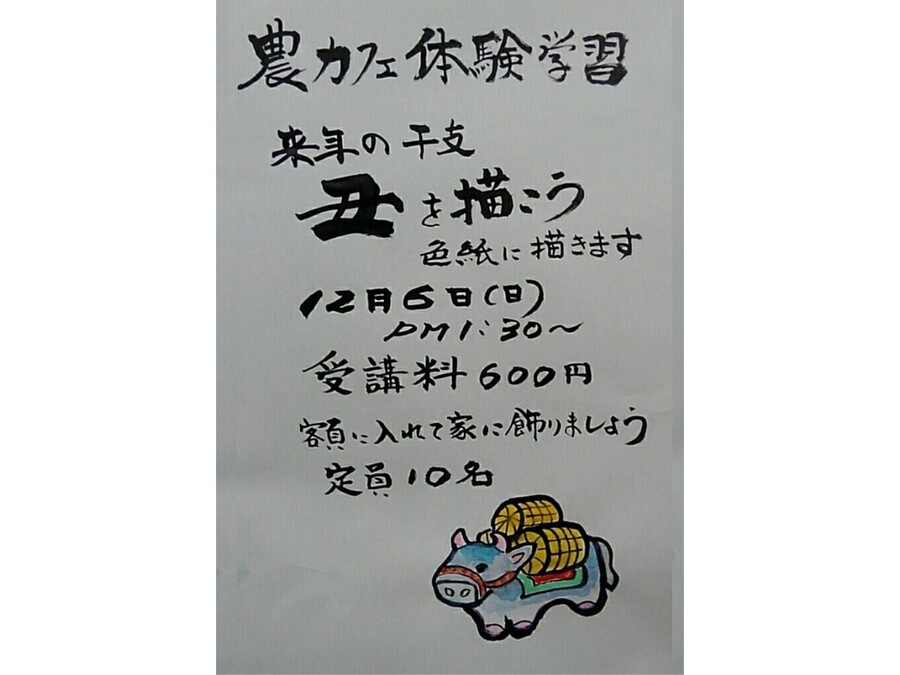 農カフェ体験学習
来年の干支
丑を描こう
色紙に描きます
12月6日(日)
PM1:30〜
受講料600円
額に入れて家に飾りましょう
定員10名